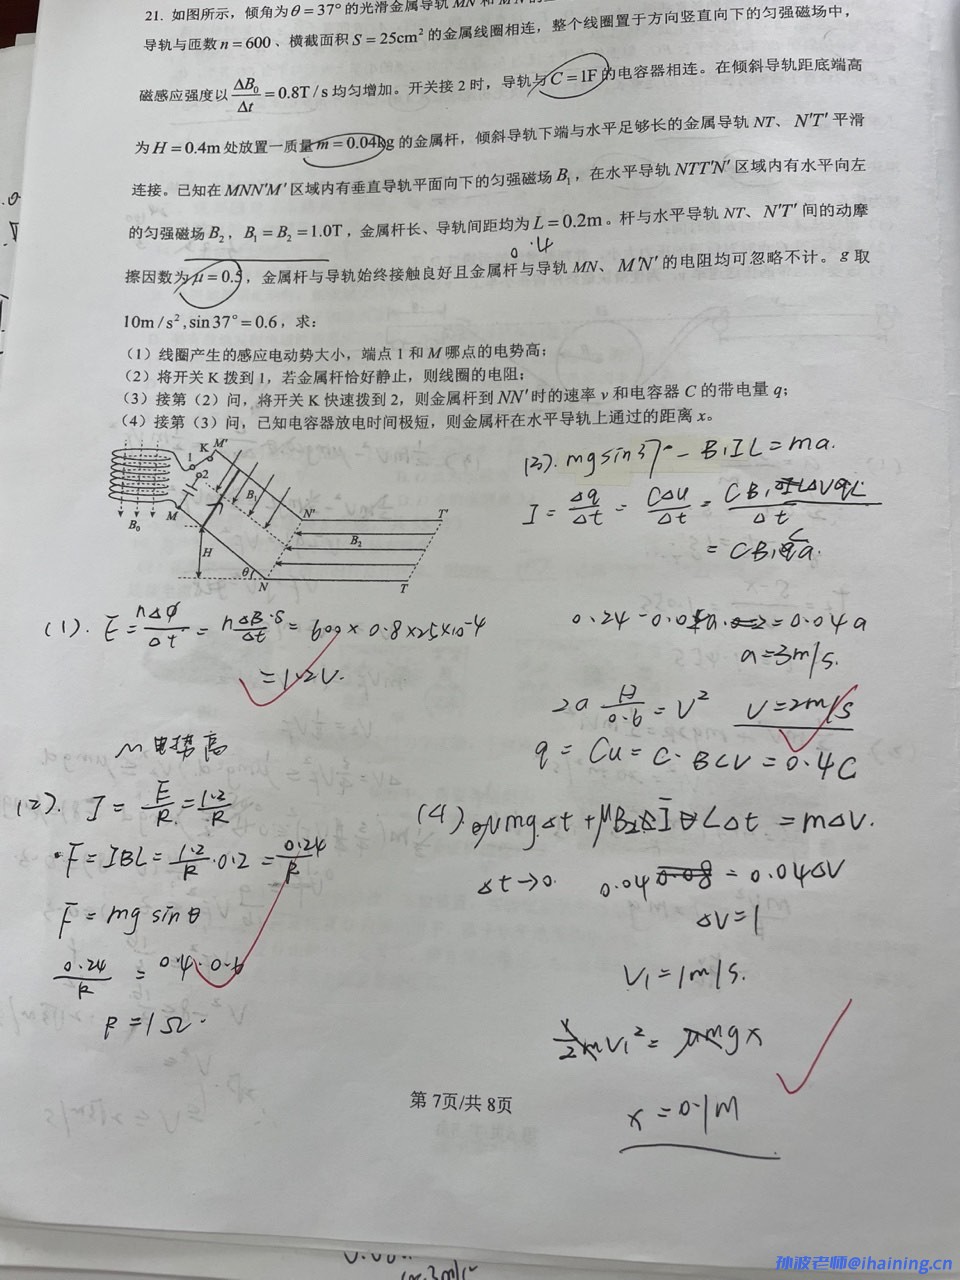 21. 如图所示，倾角为θ=37°的光滑金属导轨MN和M′N′的
导轨与匝数n=600、横截面积S=25cm²的金属线圈相连，整个线圈置于方向竖直向下的匀强磁场中，
磁感应强度以ΔB₀/Δt=0.8T/s均匀增加。开关接2时，导轨与C=1F的电容器相连。在倾斜导轨距底端高
为H=0.4m处放置一质量m=0.04kg的金属杆，倾斜导轨下端与水平足够长的金属导轨NT、N′T′平滑
连接。已知在MNN′M′区域内有垂直导轨平面向下的匀强磁场B₁，在水平导轨NTT′N′区域内有水平向左
的匀强磁场B₂，B₁=B₂=1.0T，金属杆长、导轨间距均为L=0.2m。杆与水平导轨NT、N′T′间的动摩
0.4
擦因数为μ=0.5，金属杆与导轨始终接触良好且金属杆与导轨MN、M′N′的电阻均可忽略不计。g取
10m/s²,sin37°=0.6，求：
（1）线圈产生的感应电动势大小，端点1和M哪点的电势高；
（2）将开关K拨到1，若金属杆恰好静止，则线圈的电阻；
（3）接第（2）问，将开关K快速拨到2，则金属杆到NN′时的速率v和电容器C的带电量q；
（4）接第（3）问，已知电容器放电时间极短，则金属杆在水平导轨上通过的距离x。
1 K M′
2
B₁
M
B₀
N′ T′
B₂
H
θ
N T
(1). E=nΔφ/Δt=nΔB·S/Δt=600×0.8×25×10⁻⁴
=1.2V.
M电势高
(2). I=E/R=1.2/R
F=IBL=1.2/R·0.2=0.24/R
F=mg sinθ
0.24/R=0.4·0.6
R=1Ω.
(3). mgsin37°-B₁IL=ma.
I=Δq/Δt=CΔu/Δt=CB₁ΔVL/Δt
=CB₁La.
0.24-0.04a=0.04a
a=3m/s.
2a H/0.6=V² V=2m/s
q=Cu=C·BLV=0.4C
(4). μmgΔt+μB₂ĪLΔt=mΔV.
Δt→0. 0.04=0.04ΔV
ΔV=1
V₁=1m/s.
1/2mV₁²=μmgx
x=0.1m
第7页/共8页
孙波老师@ihaining.cn